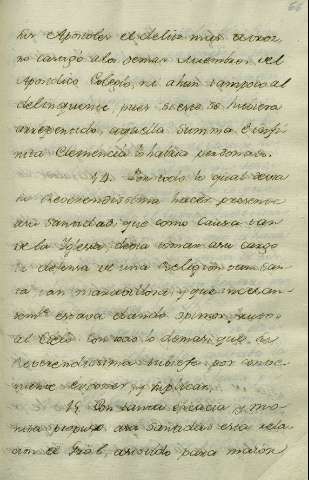 los Apostoles el delito mas atroz
no castigó a los demas miembros del
Apostolico Colegio, ni ahun tampoco al
delinquente, pues si este se hubiera
arrepentido, aquella summa e infi-
nita Clemencia lo habria perdonado.
14. Con todo lo qual devia
su Reverendissima hacer presente
a su Santidad, que como Causa tan
de la Iglesia, devia tomar a su cargo
la defensa de una Religion tan San-
ta tan maravillosa, y que incesan-
temte estava dando opimos frutos
al Cielo con todo lo demas que su
Reverendissima tubiese por conve-
niente exponer, y suplicar.
15. Con tanta eficacia y
propuso a su Santidad esta
el Gral,